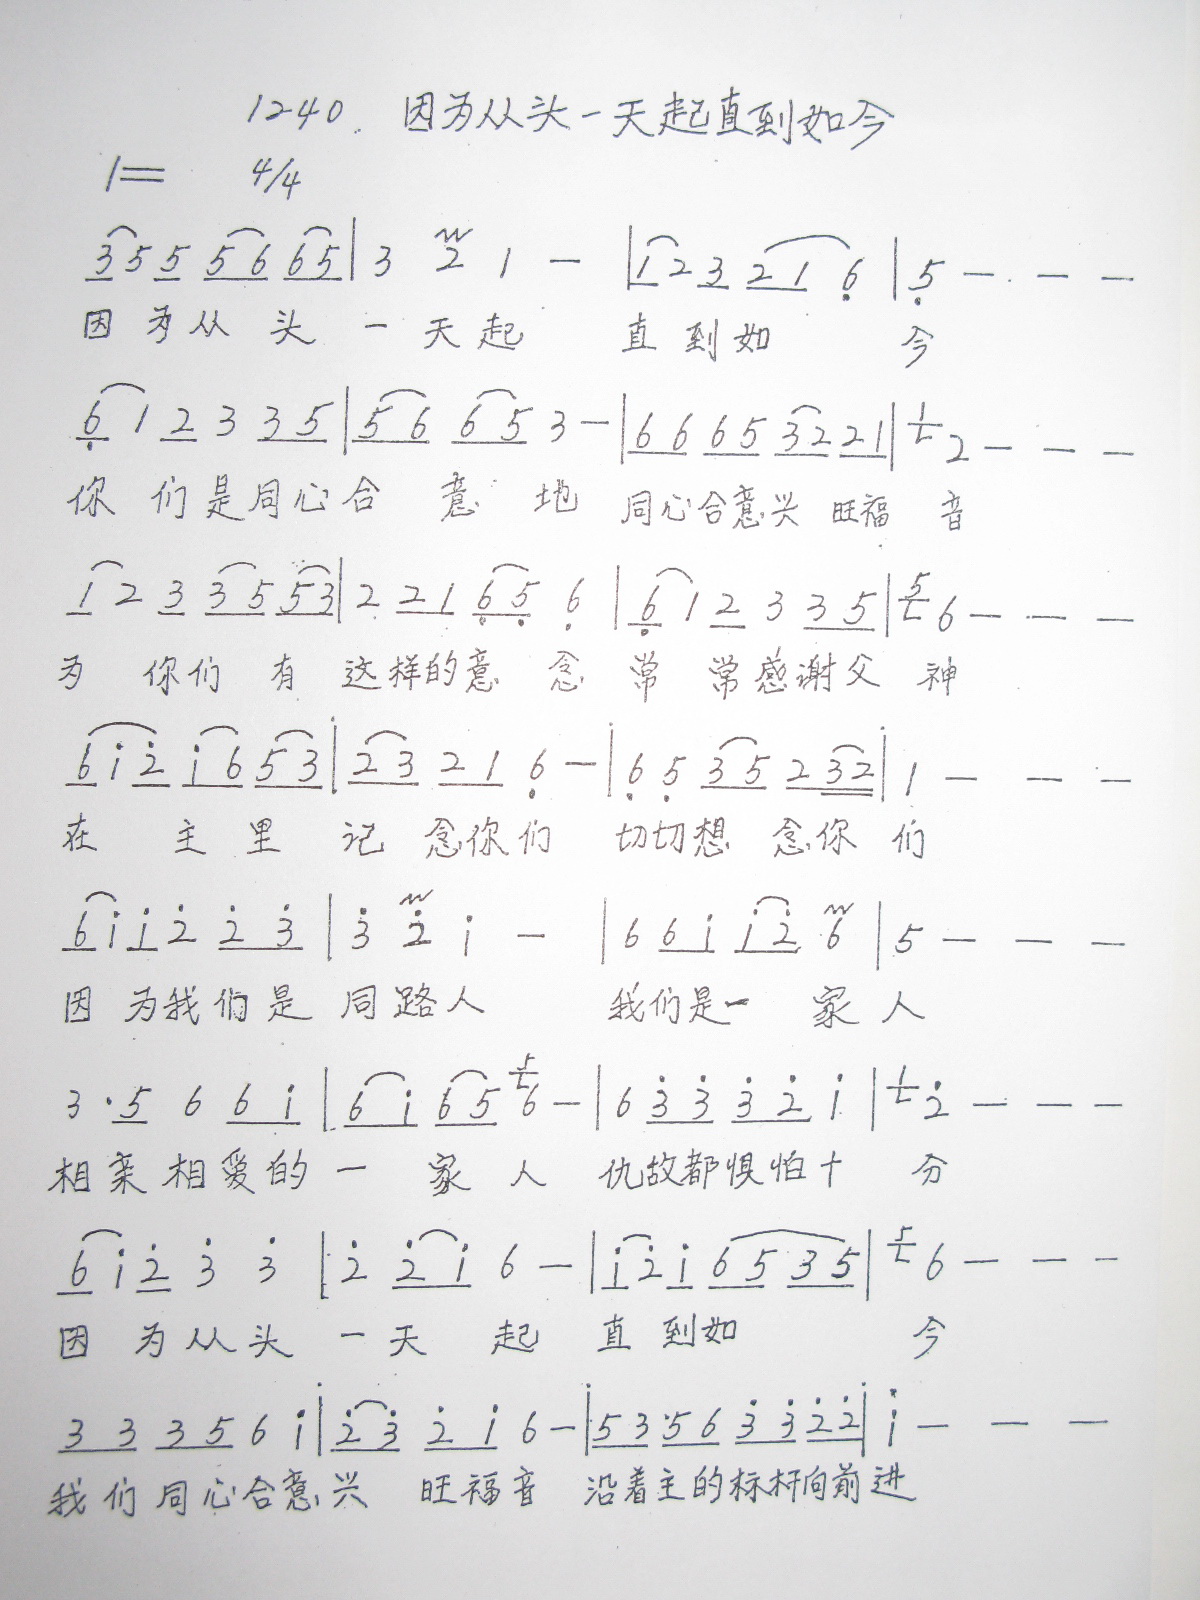 1240. 因为从头一天起直到如今
1= 4/4
3 5 5 5 6 6 5 | 3 2 1 — | 1 2 3 2 1 6̣ | 5̣ — — —
因为从头一天起 直到如今
6̣ 1 2 3 3 5 | 5 6 6 5 3 — | 6 6 6 5 3 2 2 1 | 1 2 — — —
你们是同心合意地 同心合意兴旺福音
1 2 3 3 5 5 3 | 2 2 1 6̣ 5̣ 6̣ | 6̣ 1 2 3 3 5 | 5 6 — — —
为你们有这样的意念常常感谢父神
6 i 2̇ i 6 5 3 | 2 3 2 1 6̣ — | 6̣ 5̣ 3 5 2 3 2 | 1 — — —
在主里记念你们 切切想念你们
6 i i 2̇ 2̇ 3̇ | 3̇ 2̇ i — | 6 6 i i 2̇ 6 | 5 — — —
因为我们是同路人 我们是一家人
3 · 5 6 6 i | 6 i 6 5 5 6 — | 6 3̇ 3̇ 3̇ 2̇ i | 1 2̇ — — —
相亲相爱的一家人 仇敌都惧怕十分
6 i 2̇ 3̇ 3̇ | 2̇ 2̇ i 6 — | i 2̇ i 6 5 3 5 | 5 6 — — —
因为从头一天起 直到如今
3 3 3 5 6 i | 2̇ 3̇ 2̇ i 6 — | 5 3 5 6 3̇ 3̇ 2̇ 2̇ | i — — —
我们同心合意兴旺福音 沿着主的标杆向前进